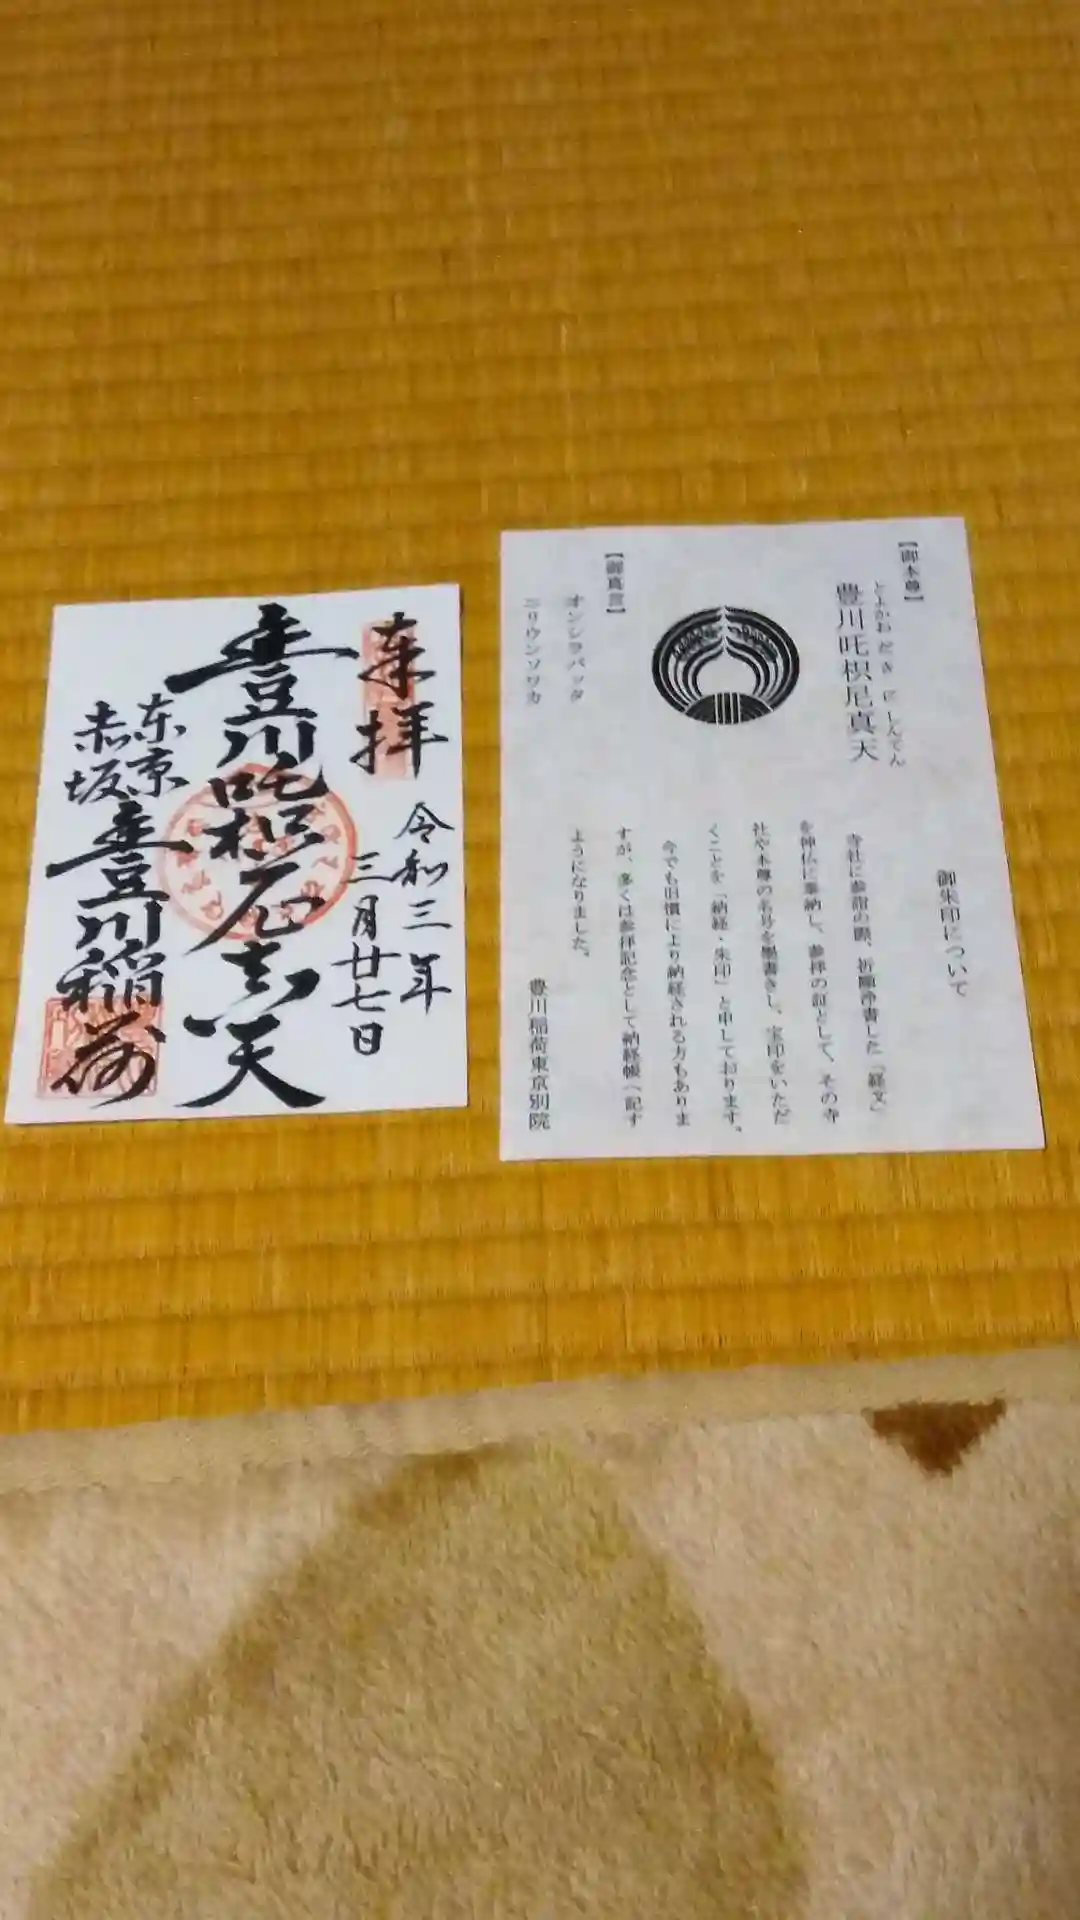 奉拝
令和三年
三月廿七日
豊川吒枳尼真天
東京
赤坂
豊川稲荷
御朱印について
【御本尊】
とよかわだきにしんてん
豊川吒枳尼真天
【御真言】
オンシラバッタ
ニリウンソワカ
寺社に参詣の際、祈願浄書した「経文」
を神仏に奉納し、参拝の証として、その寺
社や本尊の名号を墨書きし、宝印をいただ
くことを「納経・朱印」と申しております。
今でも旧慣により納経される方もありま
すが、多くは参拝記念として納経帳へ記す
ようになりました。
豊川稲荷東京別院